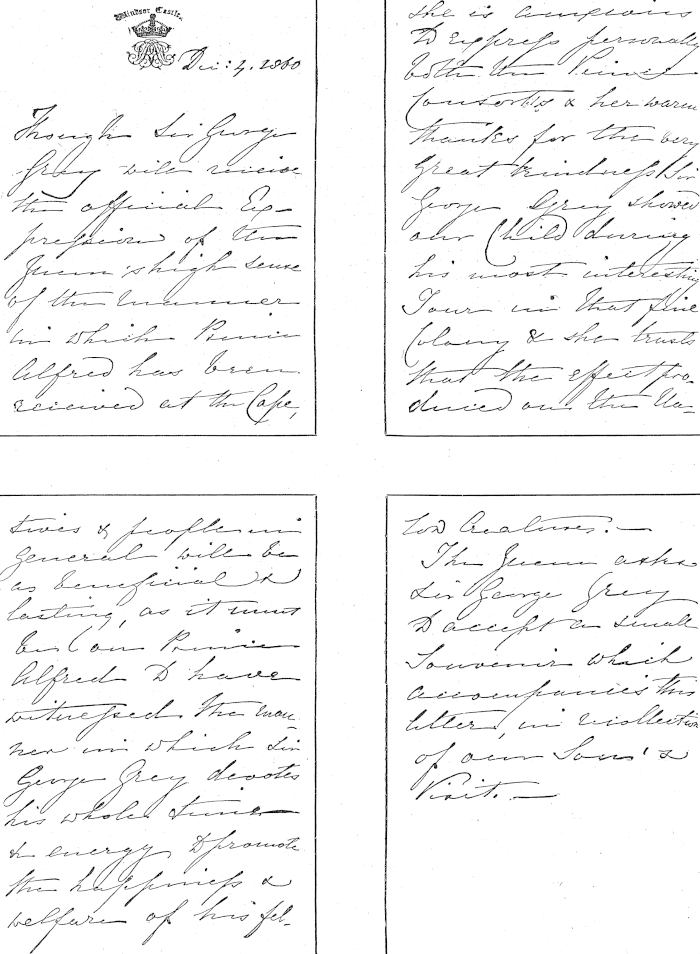 Windsor Castle
Dec: 4. 1860
Though Sir George
Grey will receive
the official Ex-
pression of the
Queen's high sense
of the manner
in which Prince
Alfred has been
received at the Cape,
she is anxious
to express personally
both the Prince
Consort's & her warm
thanks for the very
great kindness Sir
George Grey showed
our Child during
his most interesting
Tour in that fine
Colony & she trusts
that the effect pro-
duced on the Na-
tives & people in
general will be
as beneficial &
lasting, as it must
be on Prince
Alfred to have
witnessed the man-
ner in which Sir
George Grey devotes
his whole time
& energy to promote
the happiness &
welfare of his fel-
low Creatures.—
The Queen asks
Sir George Grey
to accept a small
Souvenir which
accompanies this
letter, in recollection
of our Son's
Visit.—